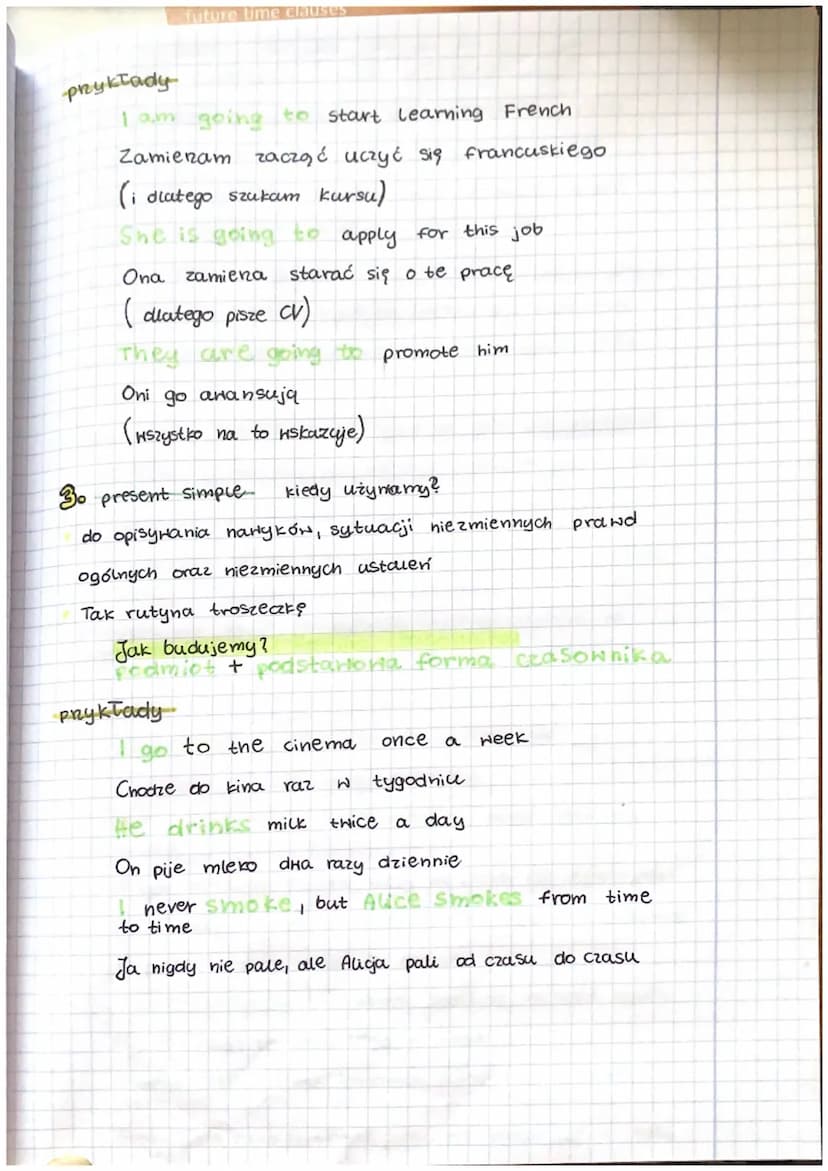 future time clauses
przykłady
I am going to start learning French
Zamierzam zacząć uczyć się francuskiego
(i dlatego szukam kursu)
She is going to apply for this job
Ona zamierza starać się o te pracę
(dlatego pisze CV)
They are going to promote him
Oni go awansują
(wszystko na to wskazuje)
3. present simple kiedy używamy?
do opisywania nawyków, sytuacji niezmiennych prawd
ogólnych oraz niezmiennych ustaleń
Tak rutyna troszeczkę
Jak budujemy?
podmiot + podstawowa forma czasownika
przykłady
I go to the cinema once a week
Chodze do kina raz w tygodniu
He drinks milk twice a day
On pije mleko dwa razy dziennie
I never smoke, but Alice smokes from time
to time
Ja nigdy nie pale, ale Alicja pali od czasu do czasu